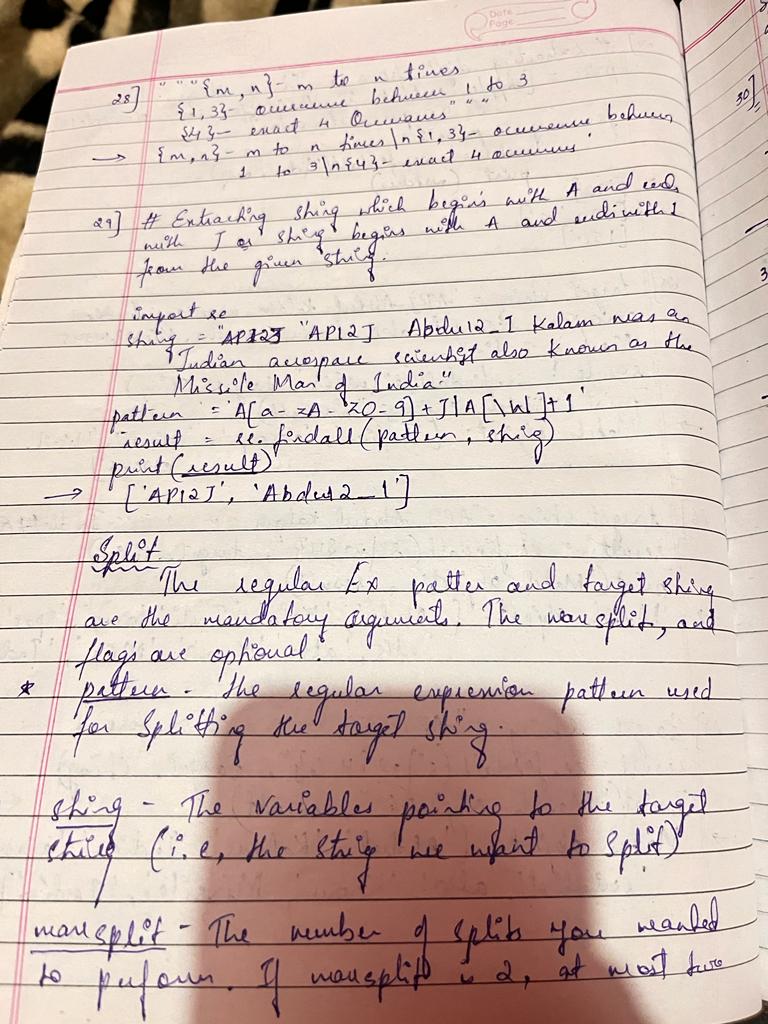 Date
Page
28] """{m, n}- m to n times
{1, 3}- occurence between 1 to 3
{4}- exact 4 Occurences"""
→ {m, n}- m to n times\n{1, 3}- occurence between
1 to 3\n{4}- exact 4 occurences'
29] # Extracting string which begins with A and ends
with J or string begins with A and ends with 1
from the given string.
import re
string = "AP12J Abdul2_1 Kalam was an
Indian aerospace scientist also known as the
Missile Man of India"
pattern = 'A[a-zA-Z0-9]+J|A[\W]+1'
result = re.findall(pattern, string)
print(result)
→ ['AP12J', 'Abdul2_1']
Split
The regular Ex patter and target string
are the mandatory arguments. The maxsplit, and
flags are optional.
* pattern - the regular expression pattern used
for Splitting the target string.
string - The variables pointing to the target
string (i.e, the string we want to Split)
maxsplit - The number of splits you wanted
to perform. If maxsplit is 2, at most two
30]